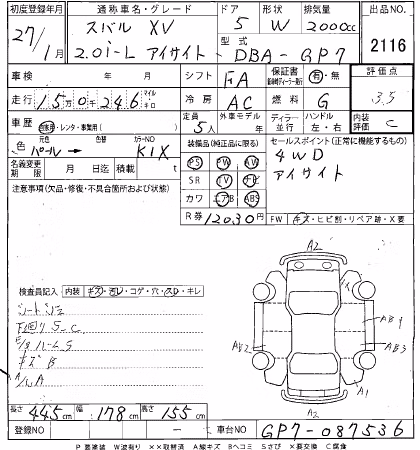 初度登録年月 通称車名・グレード ドア 形状 排気量 出品NO.
27/1月 スバル XV 5 W 2000cc
2.0i-L アイサイト 型式 DBA-GP7 2116
車検 年 月 シフト FA 保証書 有・無 評価点
走行 15万0千246 マイル キロ 冷房 AC 燃料 G 3.5
車歴 自家用・レンタ・事業用( ) 定員 5人 外車モデル 年 ディーラー 並行 ハンドル 左・右 内装評価 C
色 元色 パール 色替 カラーNO K1X 装備品(純正品に限る) セールスポイント(正常に機能するもの)
名義変更期限 月 日迄 積載 t kg PS PW AW 4WD
注意事項(欠品・修復・不具合箇所および状態) SR TV ナビ アイサイト
カワ エアB ABS
R券 12030円 FW キズ・ヒビ割・リペア跡・X要
検査員記入 内装 キズ・汚レ・コゲ・穴・スレ・キレ
シート
下廻りS.C
S
キズB
A/W A
A2
AB4
AB2
AB3
A1
A2
長さ 445cm 幅 178cm 高さ 155cm
登録NO ー 車台NO GP7-087536
P要塗装 W波有り ××取替済 A線キズ Bヘコミ Sさび ×要交換 C腐食